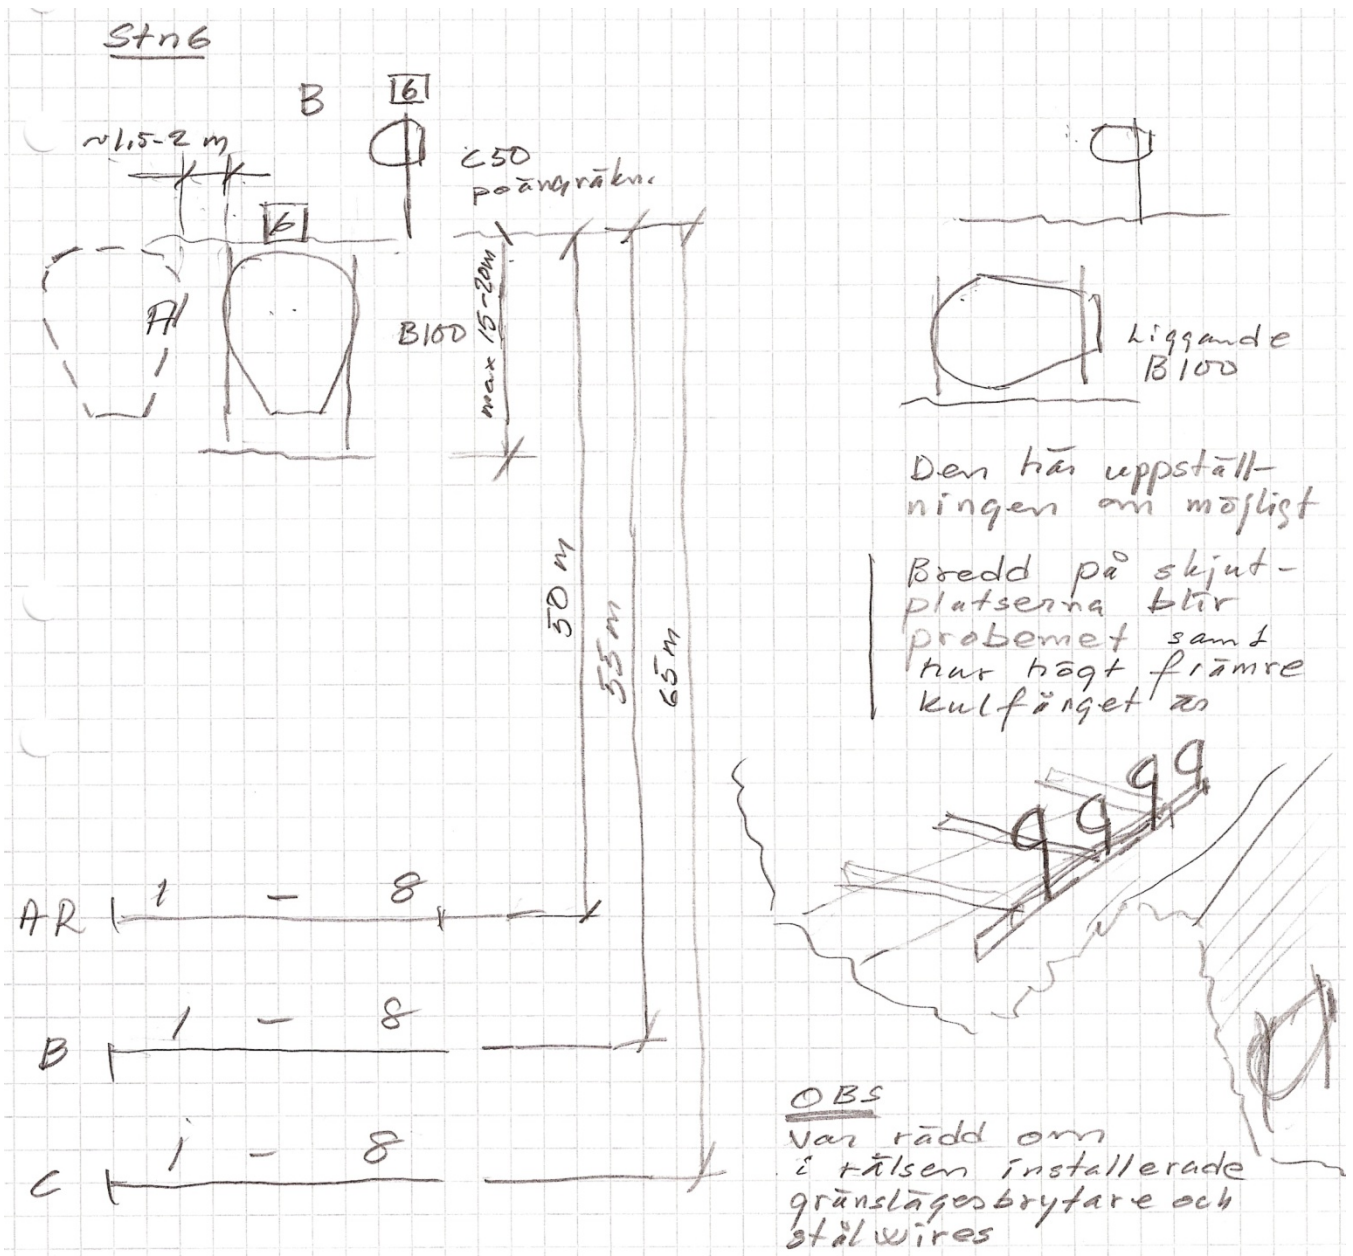 Stn6
B
6
~1,5-2 m
C50
poängräkn.
6
A
B100
max 15-20m
50 m
55 m
65 m
AR 1 - 8
B 1 - 8
C 1 - 8
Liggande
B100
Den här uppställ-
ningen om möjligt
Bredd på skjut-
platserna blir
probemet samt
hur högt främre
kulfånget är
OBS
Var rädd om
i rälsen installerade
gränslägesbrytare och
stålwires